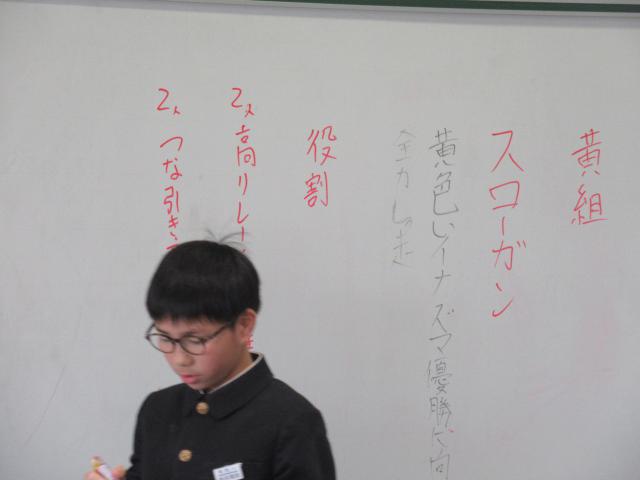 黄組
スローガン
黄色いイナズマ優勝に向
全力しっ走
役割
2人 高向リレー
2人 つな引き